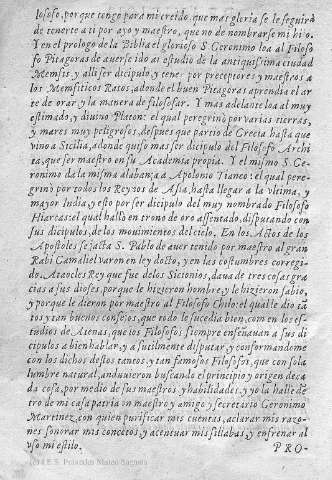 losofo, por que tengo para mi creido, que mas gloria se le seguirà
de tenerte a ti por ayo y maestro, que no de nombrarse mi hijo.
Y en el prologo de la Biblia el glorioso S. Geronimo loa al Filoso
fo Pitagoras de averse ido al estudio de la antiquissima ciudad
Memfis y alli ser dicipulo, y tener por preceptores y maestros a
los Memfiticos Ratos, adonde el buen Pitagoras aprendia el ar
te de orar y la manera de filosofar. Y mas adelante loa al muy
estimado, y divino Platon: el qual peregrinò por varias tierras,
y mares muy peligrosos, despues que partio de Grecia hasta que
vino a Sicilia, adonde quiso mas ser dicipulo del Filosofo Archi
ta, que ser maestro en su Academia propia. Y el mismo S. Ge-
ronimo da la misma alabança a Apolonio Tianeo: el qual pere
grinò por todos los Reynos de Asia, hasta llegar a la ultima, y
mayor India, y esto por ser dicipulo del muy nombrado Filosofo
Hiarcas: el qual hallò en trono de oro assentado, disputando con
sus dicipulos, de los movimientos del cielo. En los Actos de los
Apostoles se jacta S. Pablo de aver tenido por maestro al gran
Rabi Gamaliel varon en ley docto, y en las costumbres corregi-
do. Ataocles Rey que fue de los Sicionios, dava de tres cosas gra
cias a sus dioses, porque le hizieron hombre, y le hizieron sabio,
y porque le dieron por maestro al Filosofo Chilo: el qual le dio tã
tos y tan buenos consejos, que todo le sucedia bien, como en los es-
tudios de Atenas, que los Filosofos siempre enseñavan a sus di
cipulos a bien hablar, y a sutilmente disputar, y conformandome
con los dichos destos tantos, y tan famosos Filosofos, que con sola
lumbre natural, anduvieron buscando el principio y origen de ca
da cosa, por medio de sus maestros y habilidades, y yo la halle dẽ
tro de mi casa para un maestro y amigo y secretario Geronimo
Martinez, con quien purificar mis cuentas, aclarar mis razo-
nes sonorar mis concetos, y acentuar mis sillabas, y enfrenar al
uso mi estilo. PRO-
(c) I.E.S. Práxedes Mateo Sagasta